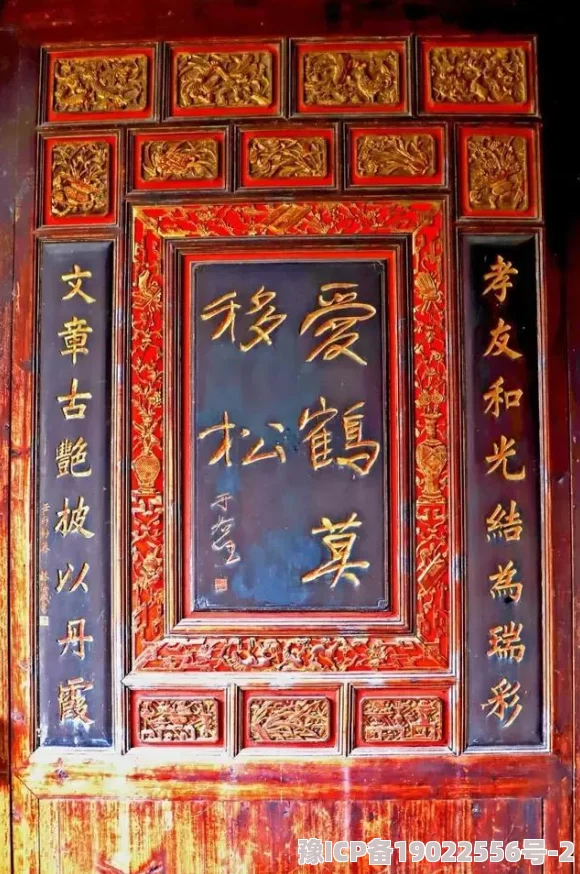 孝友和光結為瑞彩
愛鶴莫
移松
文章古艷披以丹霞
豫ICP备19022556号-2